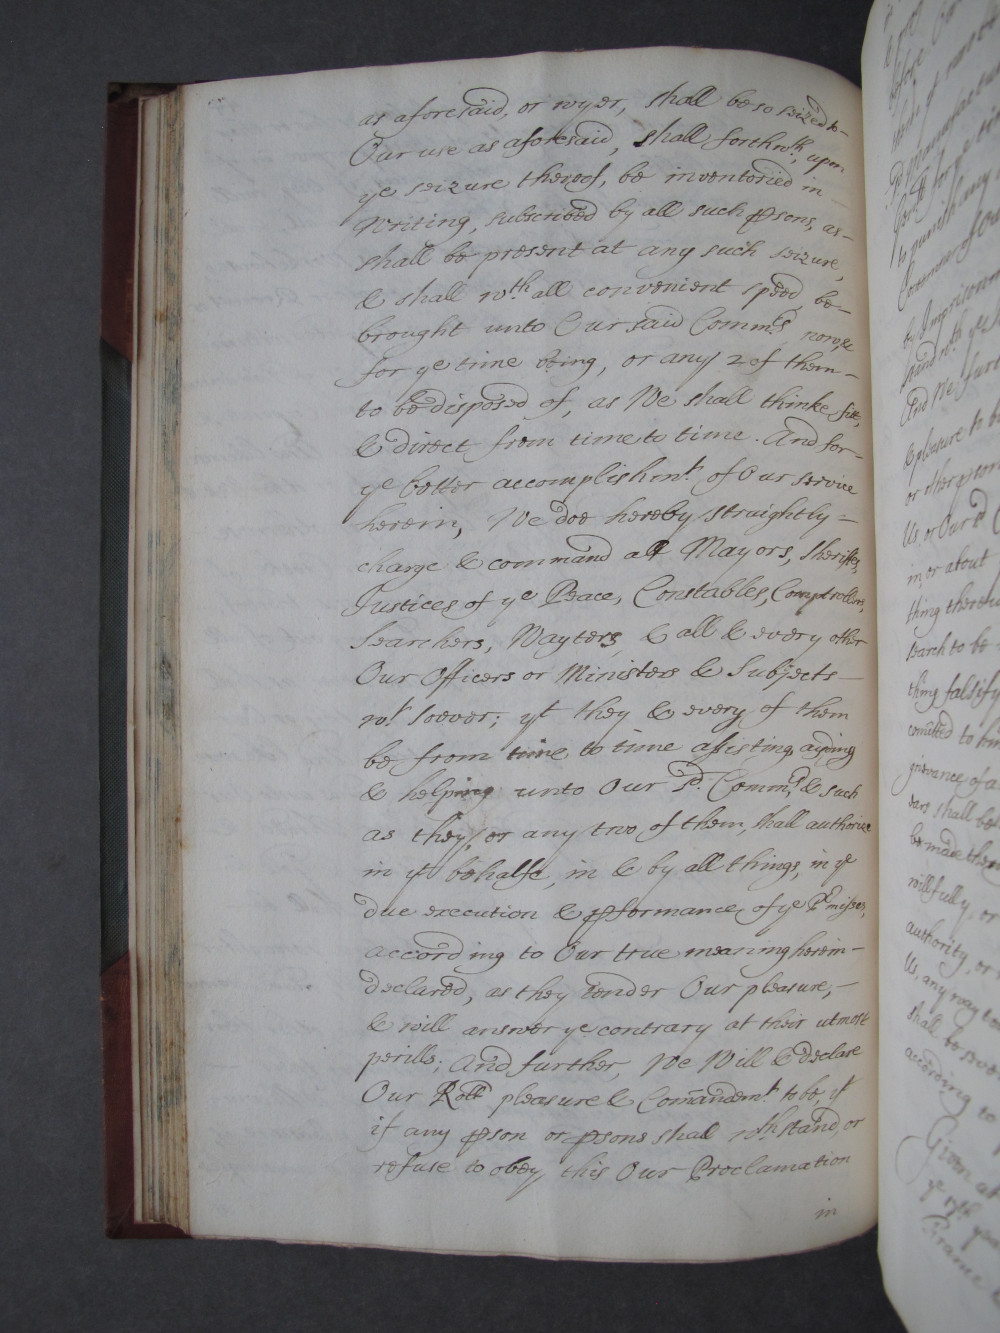 as aforesaid, or wyer, shall be so seized to-
Our use as aforesaid, shall forthwth, upon
ye seizure thereof, be inventoried in
Writing, subscribed by all such psons, as-
shall be present at any such seizure,
& shall wth all convenient speed, be-
brought unto Our said Commrs now, &
for ye time being, or any 2 of them-
to be disposed of, as We shall thinke fitt,
& direct from time to time. And for-
ye better accomplishmt of Our service
herein, We doe hereby straightly-
charge & command all Mayors, Sheriffes,
Justices of ye Peace, Constables, Comptrollers,
Searchers, Wayters, & all & every other
Our Officers or Ministers & Subjects-
wt soever; yt they & every of them
be, from time to time assisting, ayding
& helping unto Our sd. Commrs, & such
as they, or any two of them, shall authorize
in yt behalfe, in & by all things, in ye
due execution & pformance, of ye Pmisses,
according to Our true meaning herein-
declared, as they tender Our pleasure,-
& will answer ye contrary at their utmost
perills; And further, We Will & declare
Our Roll pleasure & Comandemt to be, yt
if any pson or psons shall wthstand, or
refuse to obey this Our Proclamation
in
to punish any
Given at
according to
authority, or
willfully, or
thing falsify
search to be
or about
or other pson
& pleasure to
And We furt
by Imprisonm